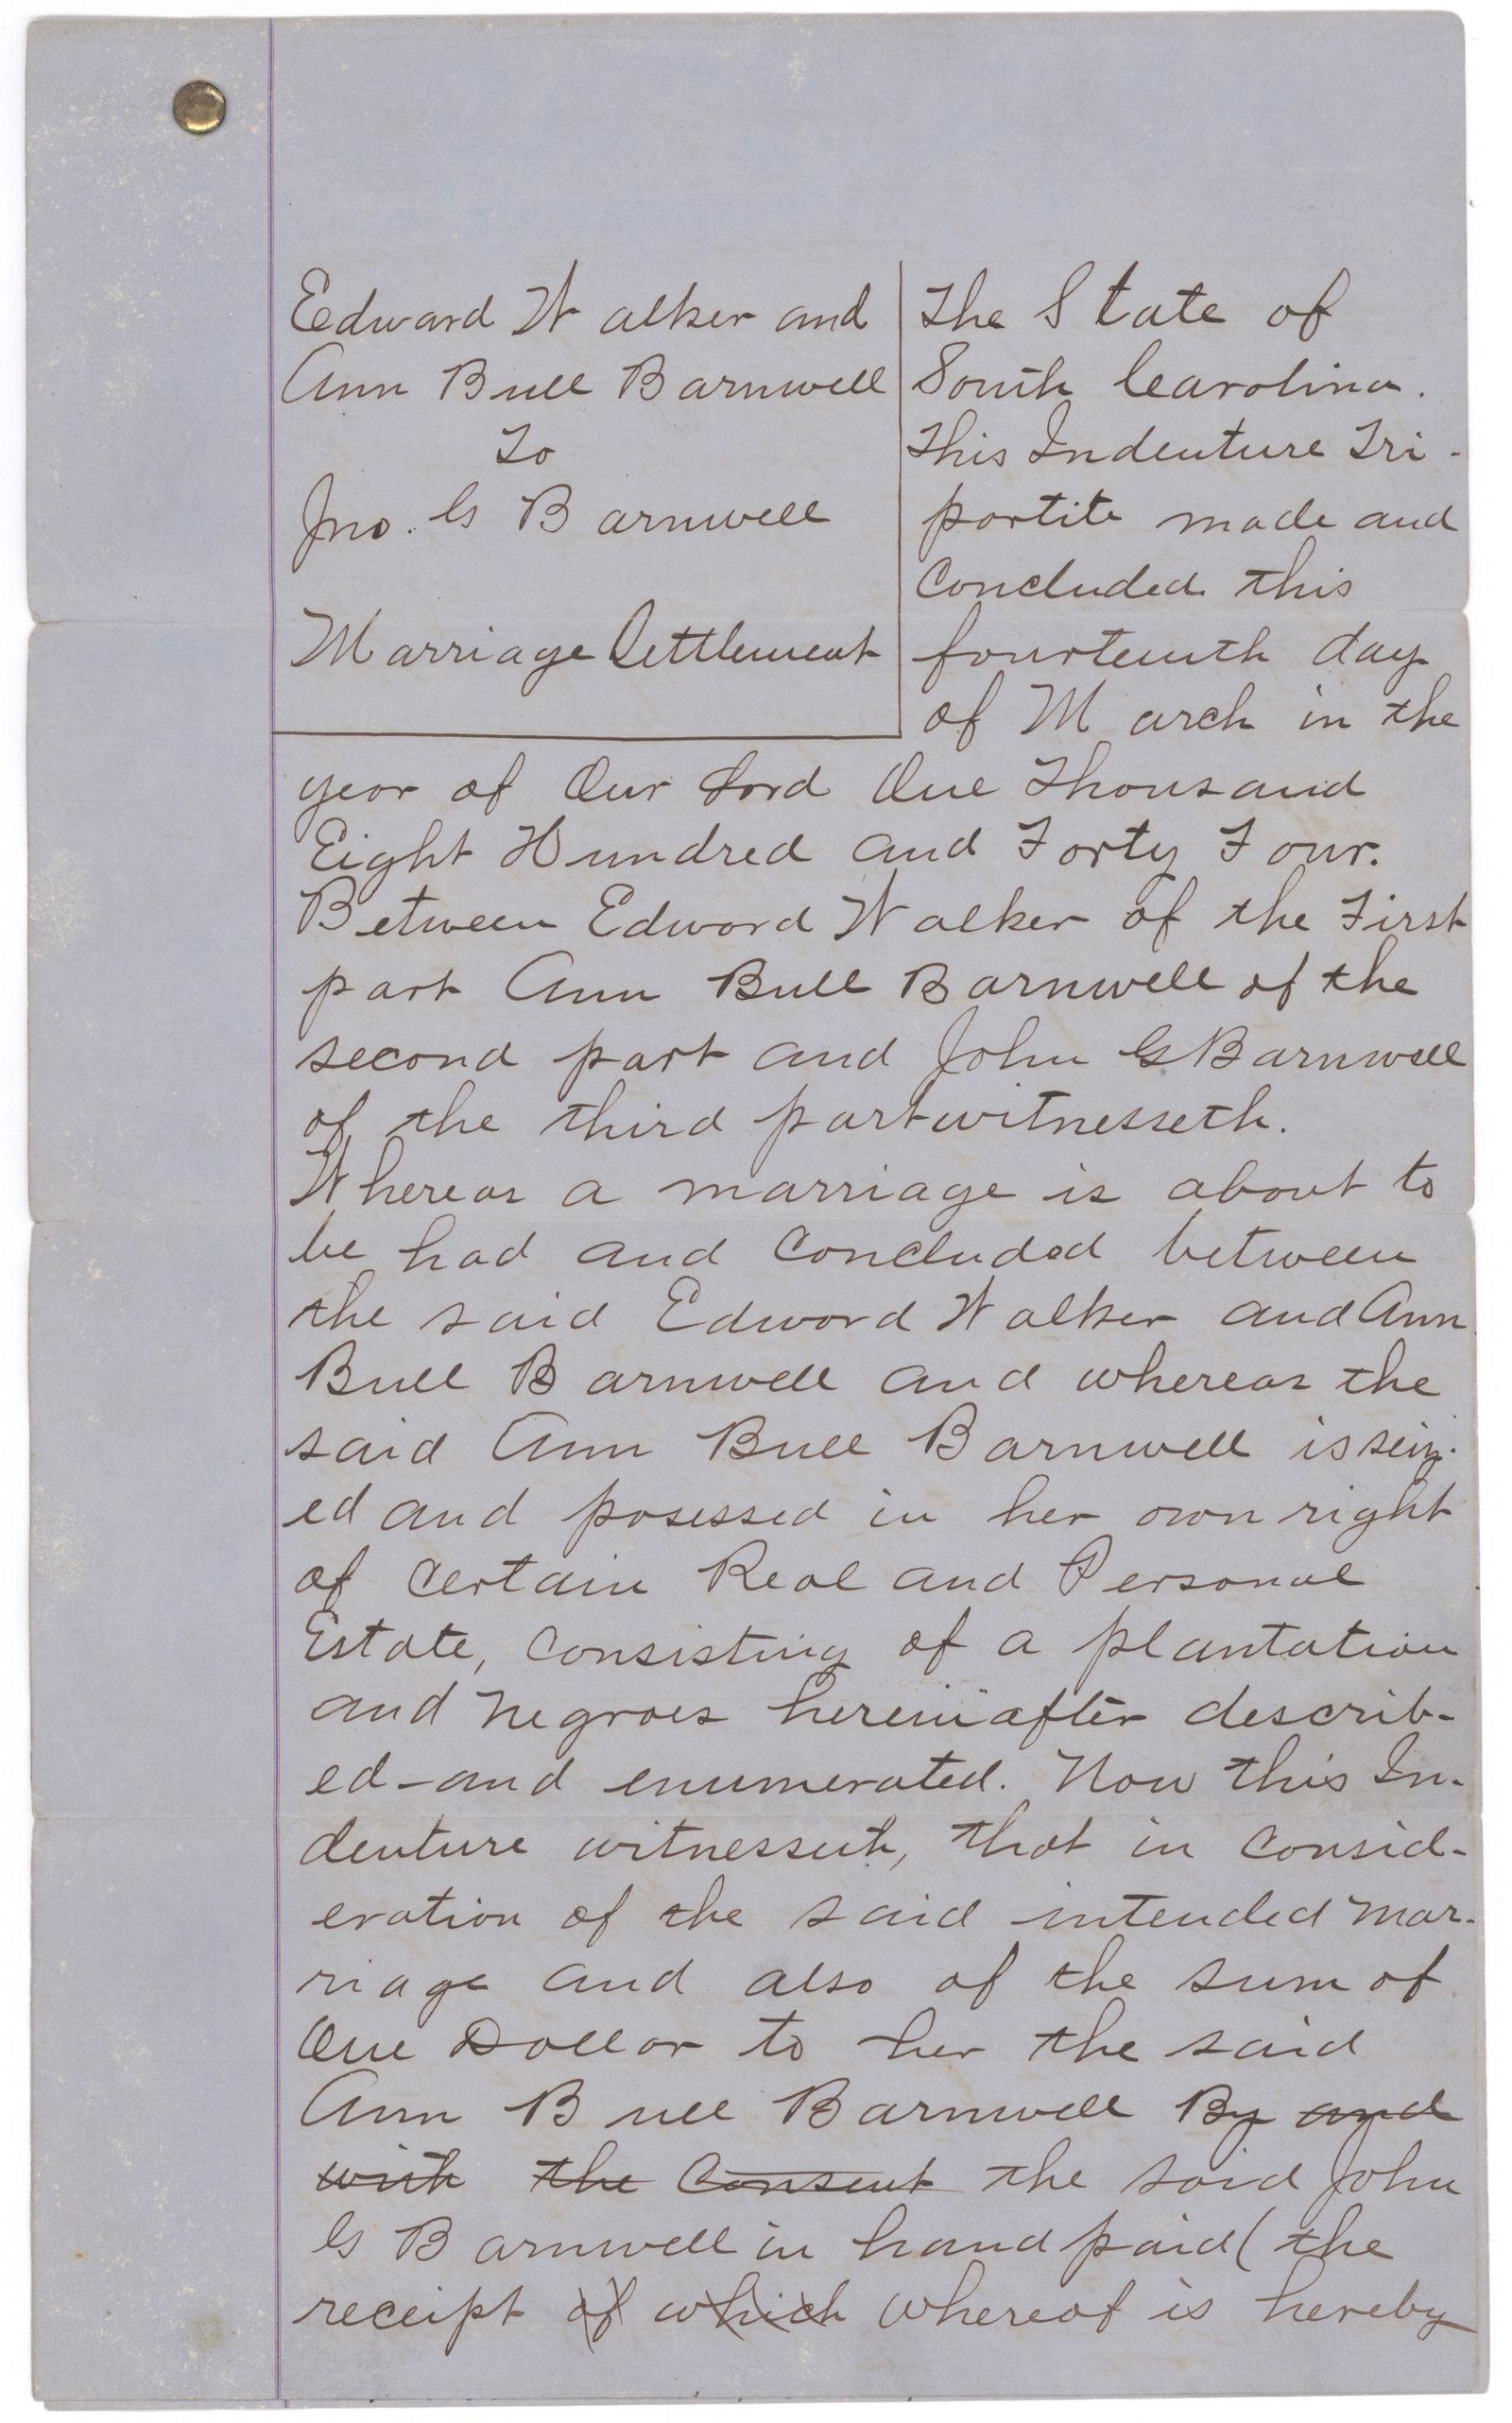 Edward Walker and
Ann Bull Barnwell
To
Jno. G Barnwell
Marriage Settlement
The State of
South Carolina.
This Indenture Tri-
partite made and
Concluded this
fourteenth day
of March in the
year of Our Lord One Thousand
Eight Hundred and Forty Four.
Between Edward Walker of the First
part Ann Bull Barnwell of the
second part and John G Barnwell
of the third part witnesseth.
Whereas a marriage is about to
be had and Concluded between
the said Edward Walker and Ann
Bull Barnwell and whereas the
said Ann Bull Barnwell is seiz-
ed and posessed in her own right
of Certain Real and Personal
Estate, Consisting of a plantation
and Negroes hereinafter describ-
ed-and enumerated. Now this In-
denture witnesseth, that in Consid-
eration of the said intended Mar-
riage and also of the sum of
One Dollar to her the said
Ann Bull Barnwell By and
with the Consent the said John
G Barnwell in hand paid (the
receipt of which whereof is hereby